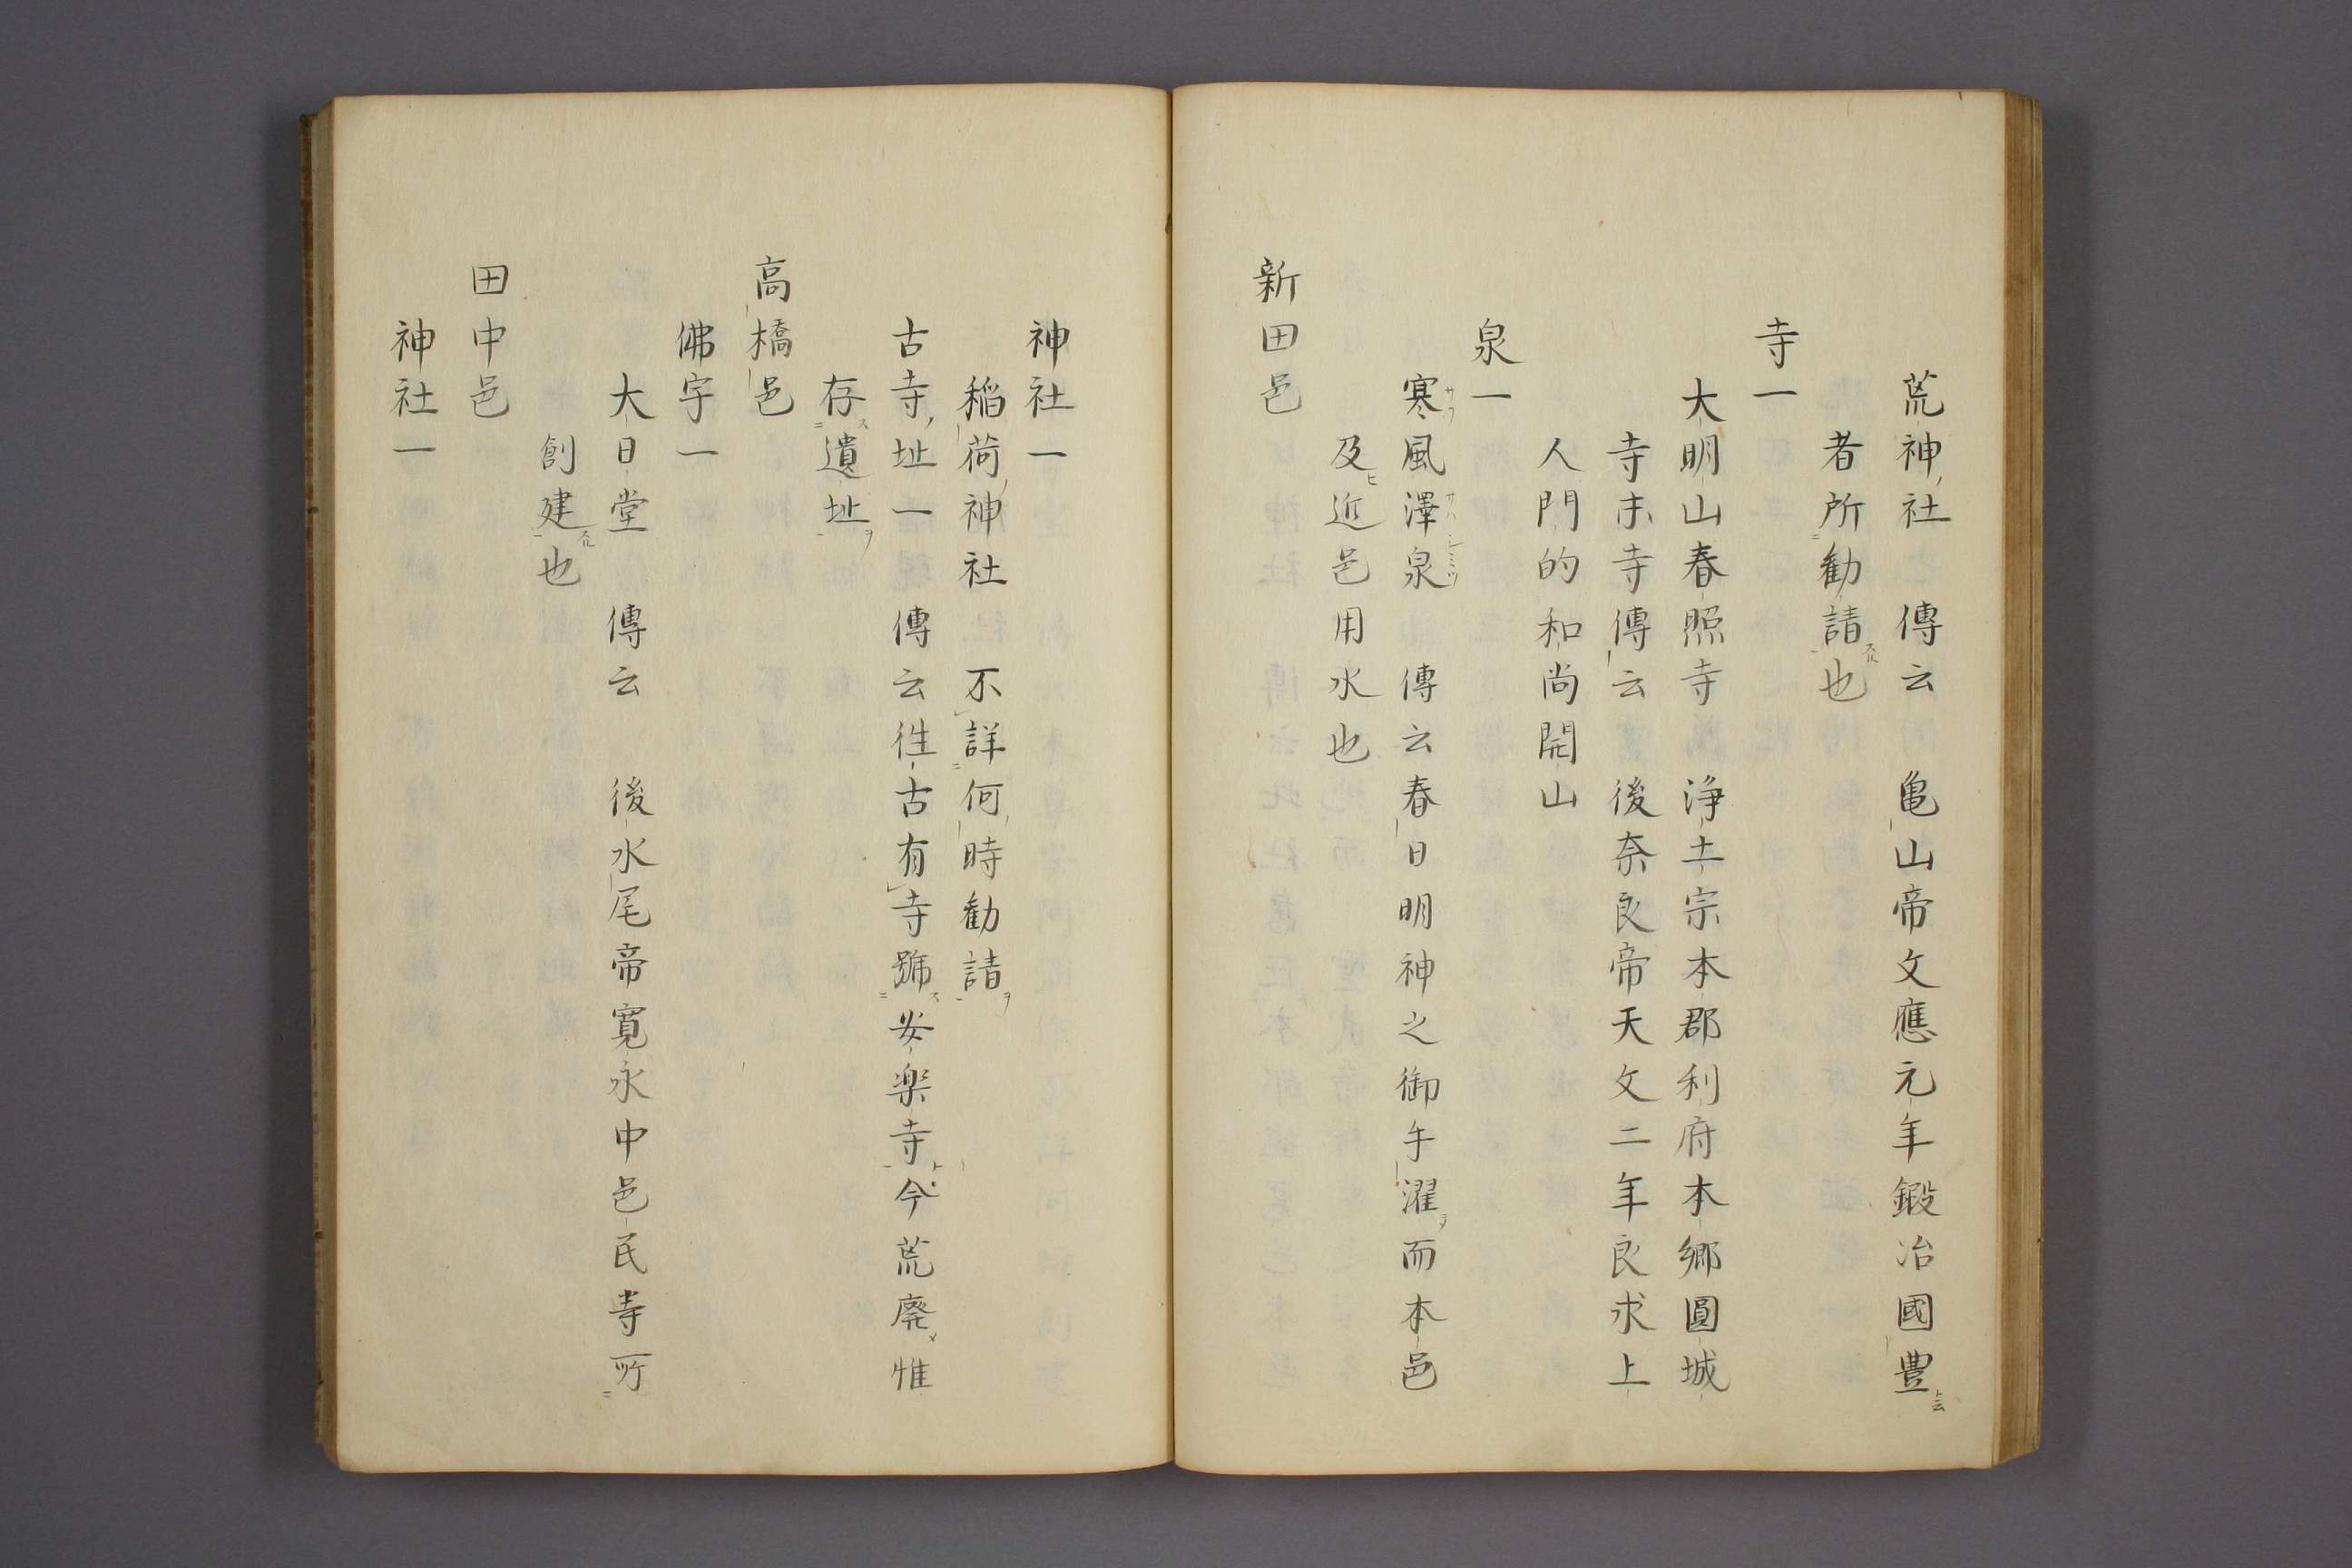 荒神社　傳云　亀山帝文應元年鍛冶國豊
者所勧請也
寺一
大明山春照寺　浄土宗本郡利府本郷圓城
寺末寺傳云　後奈良帝天文二年良求上
人門的和尚開山
泉一
寒風澤泉　傳云春日明神之御手濯而本邑
及近邑用水也
新田邑
神社一
稲荷神社　不詳何時勧請
古寺址一　傳云徃古有寺號安楽寺今荒廃惟
存遺址
高橋邑
佛宇一
大日堂　傳云　後水尾帝寛永中邑民等所
創建也
田中邑
神社一